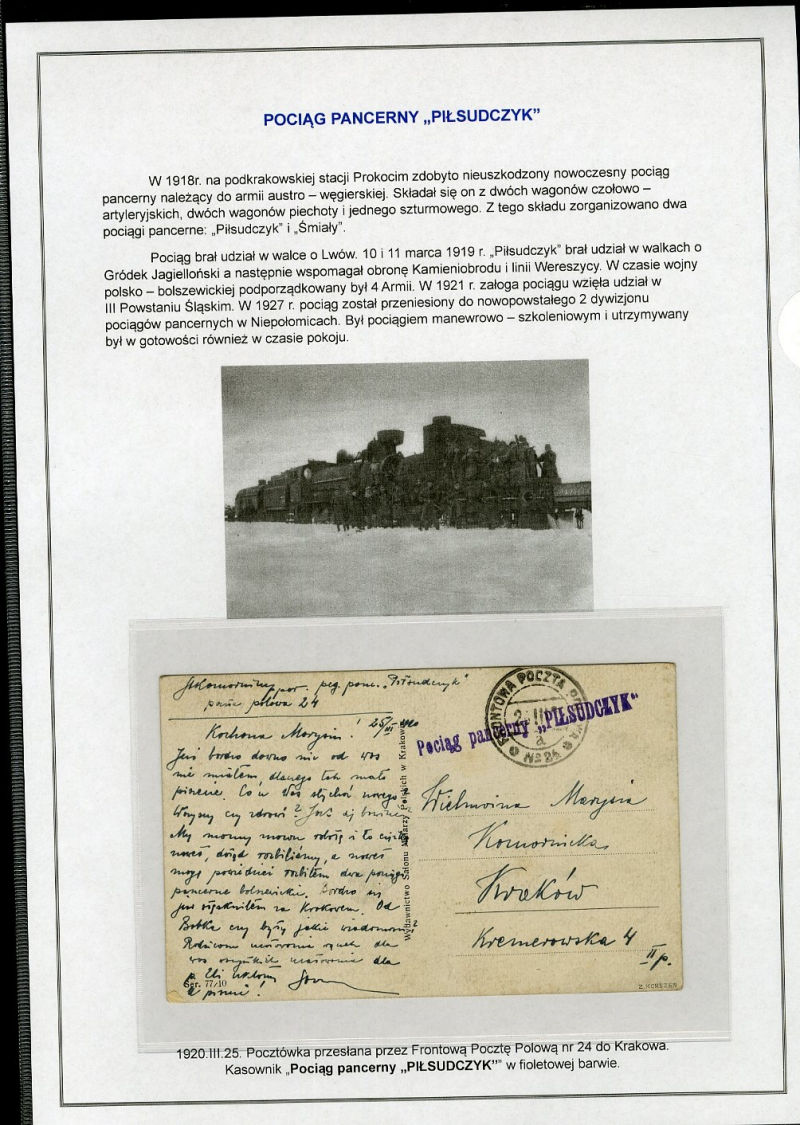 POCIĄG PANCERNY „PIŁSUDCZYK”
W 1918r. na podkrakowskiej stacji Prokocim zdobyto nieuszkodzony nowoczesny pociąg
pancerny należący do armii austro – węgierskiej. Składał się on z dwóch wagonów czołowo –
artyleryjskich, dwóch wagonów piechoty i jednego szturmowego. Z tego składu zorganizowano dwa
pociągi pancerne: „Piłsudczyk” i „Śmiały”.
Pociąg brał udział w walce o Lwów. 10 i 11 marca 1919 r. „Piłsudczyk” brał udział w walkach o
Gródek Jagielloński a następnie wspomagał obronę Kamieniobrodu i linii Wereszycy. W czasie wojny
polsko – bolszewickiej podporządkowany był 4 Armii. W 1921 r. załoga pociągu wzięła udział w
III Powstaniu Śląskim. W 1927 r. pociąg został przeniesiony do nowopowstałego 2 dywizjonu
pociągów pancernych w Niepołomicach. Był pociągiem manewrowo – szkoleniowym i utrzymywany
był w gotowości również w czasie pokoju.
por. panc. „Piłsudczyk”
polowa 24
25/III
Kochana Marysiu!
Już bardzo dawno nic od was
nie miałem, dlatego tak mało
piszecie. Co u Was słychać nowego?
Wszyscy czy zdrowi?
My mamy znowu
a nawet
mogę powiedzieć rozbiłem dwa pociągi
pancerne bolszewickie. Bardzo się
już stęskniłem za Krakowem. Od
Bobka czy były jakie wiadomości?
Rodzicom ucałowania rączek dla
was wszystkich ucałowania dla
p. Eli ukłony
Ser. 77/10
Wydawnictwo Salonu Malarzy Polskich w Krakowie
FRONTOWA POCZTA POLOWA
No 24
a
Pociąg pancerny „PIŁSUDCZYK”
Wielmożna Marysia
Komornicka
Kraków
Kremerowska 4
II p.
1920.III.25. Pocztówka przesłana przez Frontową Pocztę Polową nr 24 do Krakowa.
Kasownik „Pociąg pancerny „PIŁSUDCZYK”” w fioletowej barwie.